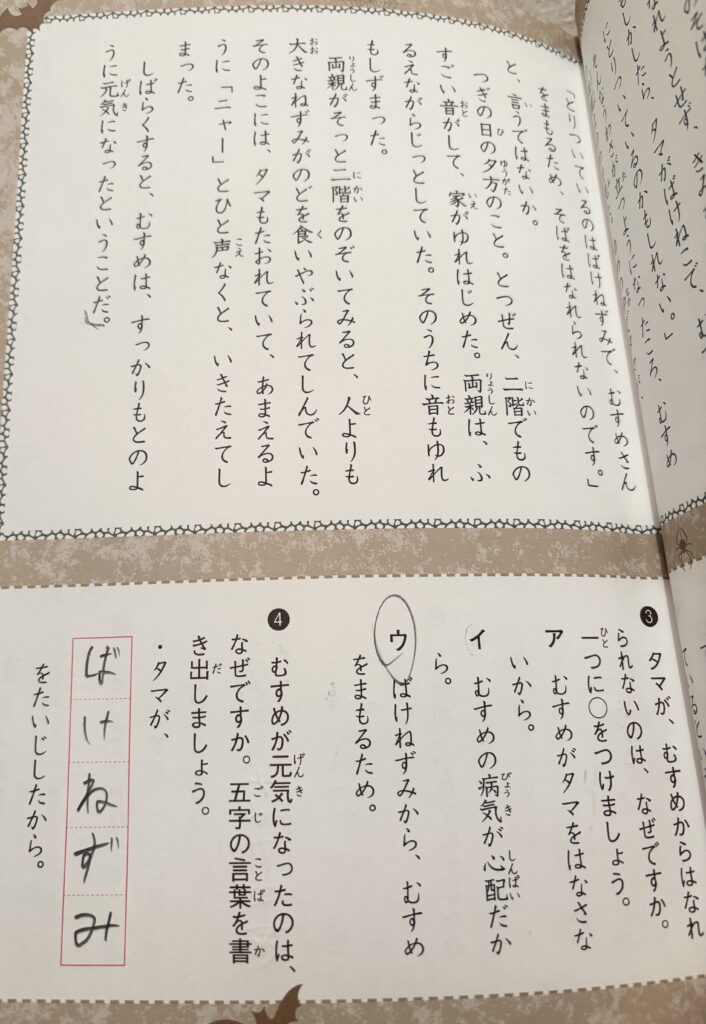 「とりついているのはばけねずみで、むすめさん
をまもるため、そばをはなれられないのです。」
と、言うではないか。
つぎの日の夕方のこと。とつぜん、二階でもの
すごい音がして、家がゆれはじめた。両親は、ふ
るえながらじっとしていた。そのうちに音もゆれ
もしずまった。
両親がそっと二階をのぞいてみると、人よりも
大きなねずみがのどを食いやぶられてしんでいた。
そのよこには、タマもたおれていて、あまえるよ
うに「ニャー」とひと声なくと、いきたえてし
まった。
しばらくすると、むすめは、すっかりもとのよ
うに元気になったということだ。
❸ タマが、むすめからはなれ
られないのは、なぜですか。
一つに○をつけましょう。
ア むすめがタマをはなさな
いから。
イ むすめの病気が心配だか
ら。
ウ ばけねずみから、むすめ
をまもるため。
❹ むすめが元気になったのは、
なぜですか。五字の言葉を書
き出しましょう。
・タマが、
ばけねずみ
をたいじしたから。